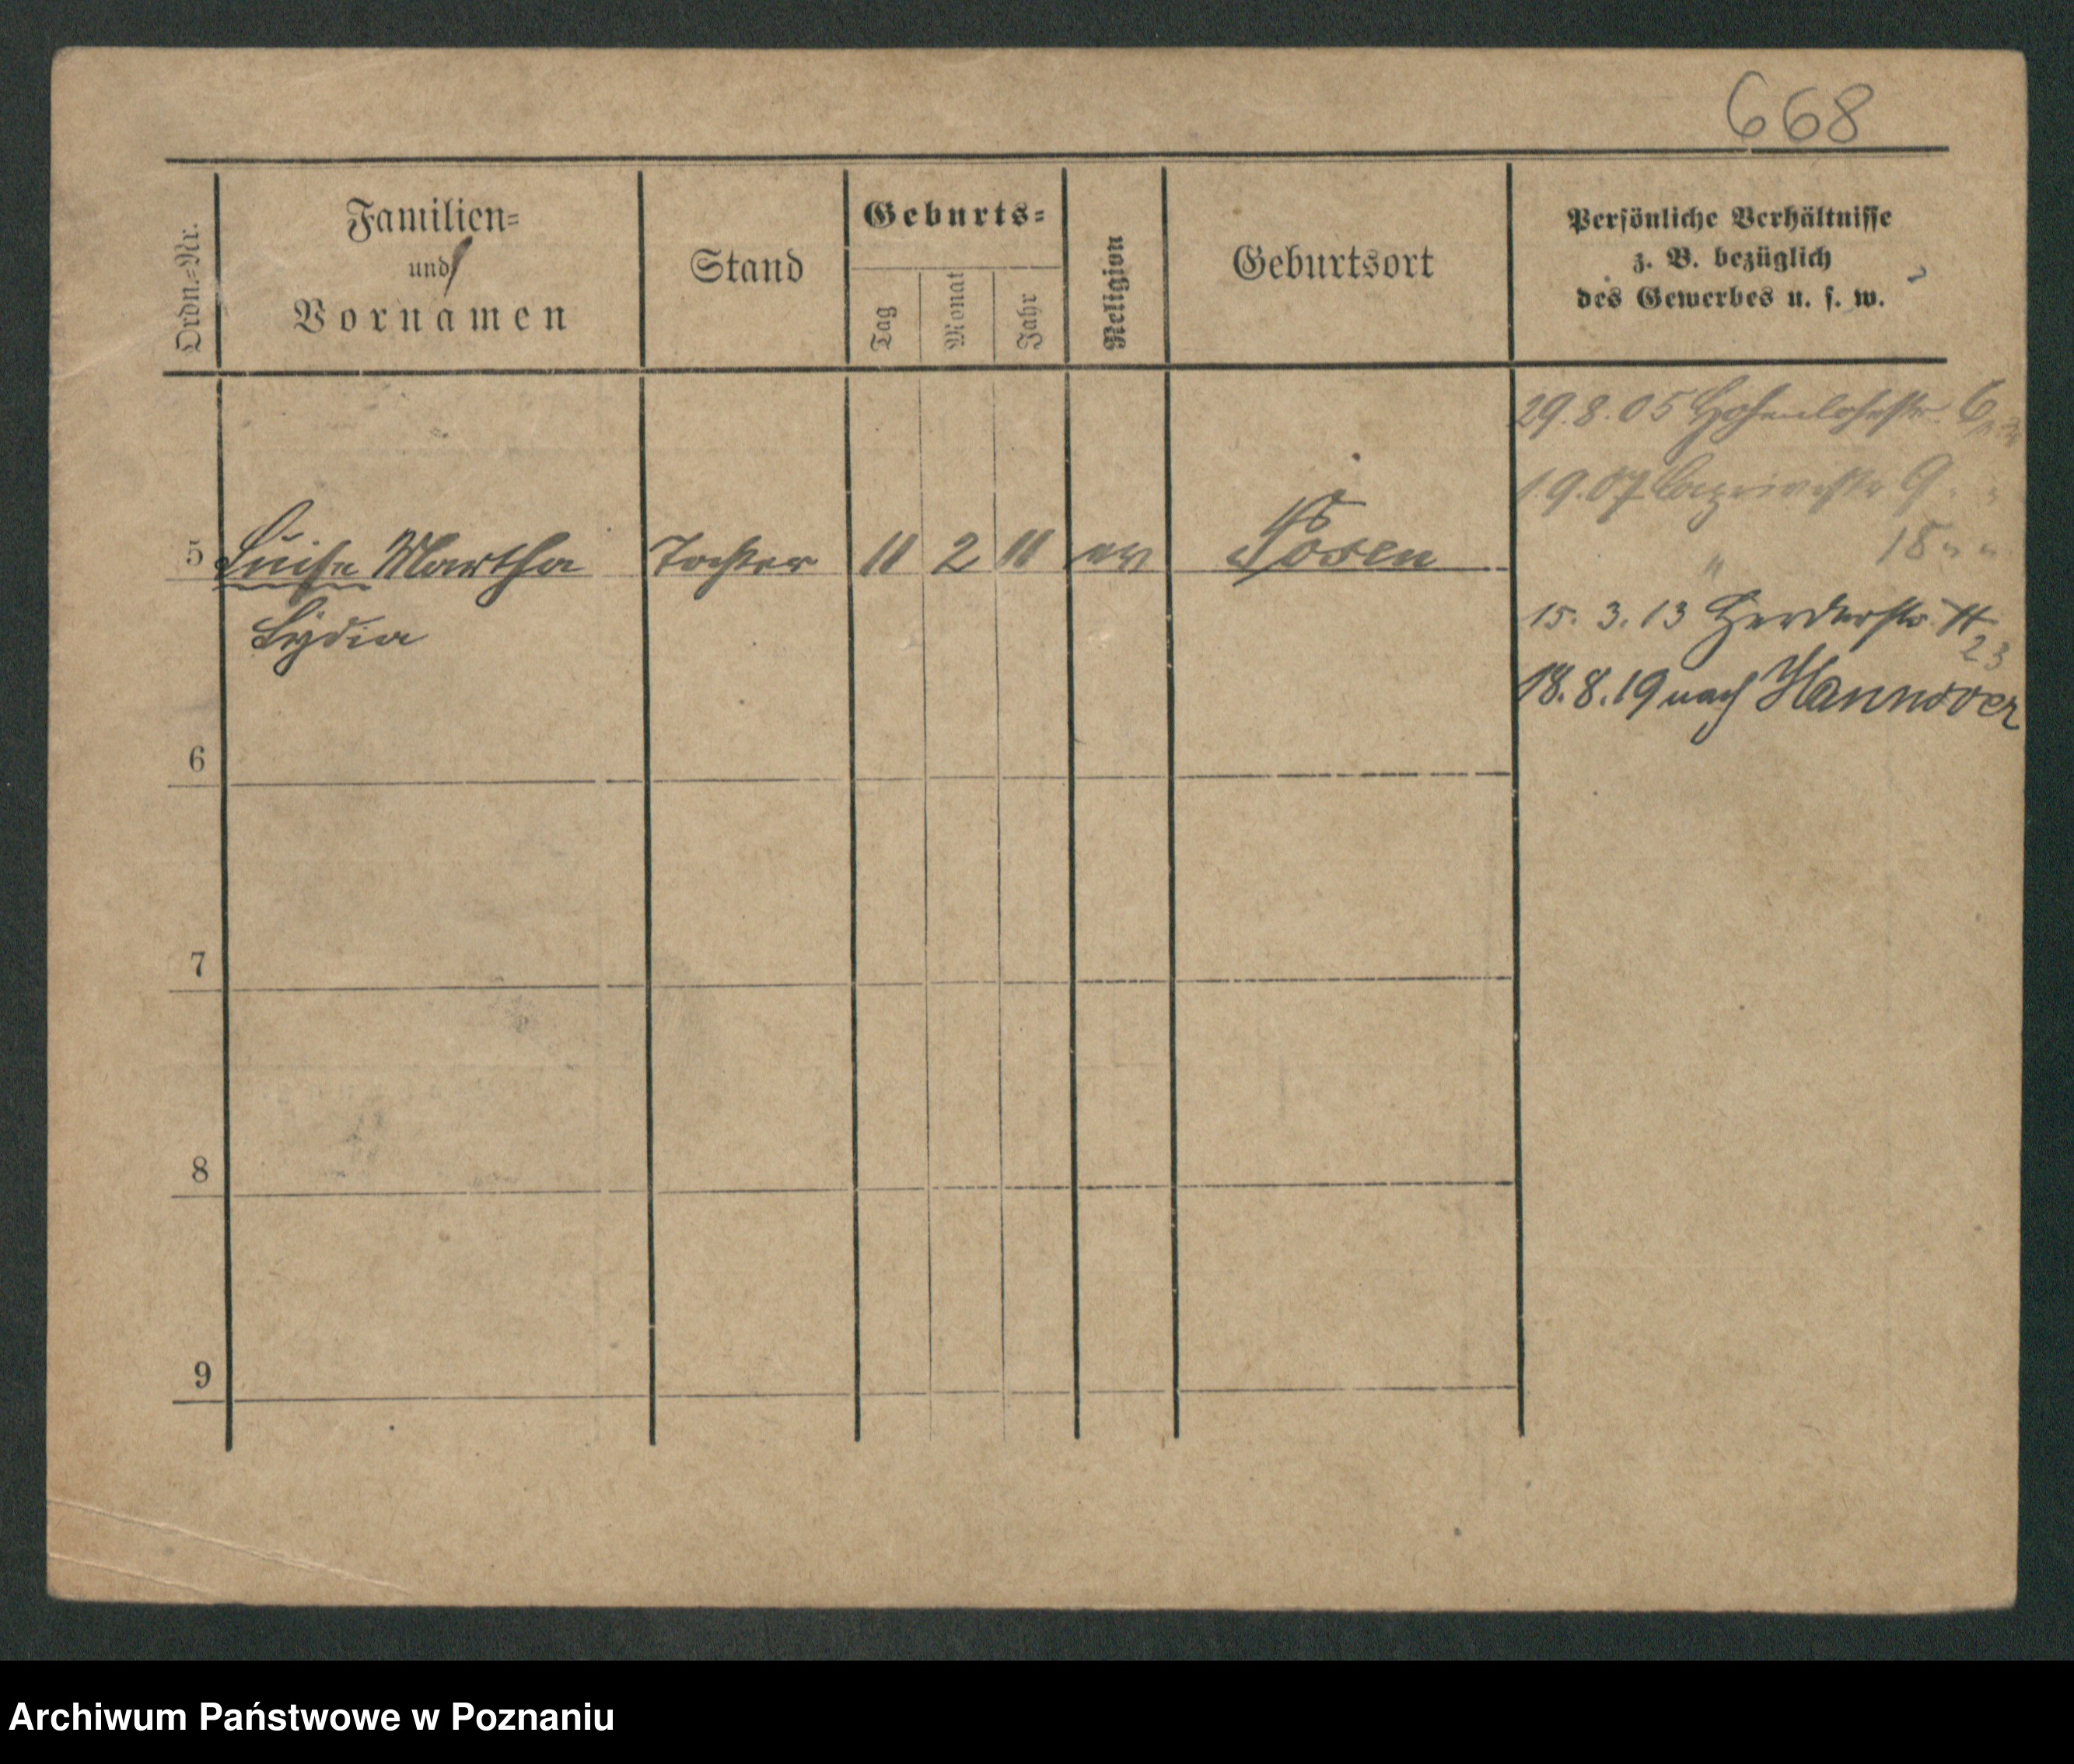 668
Ordn.=Nr.
Familien=
und
Vornamen
Stand
Geburts=
Tag
Monat
Jahr
Religion
Geburtsort
Persönliche Verhältnisse
z. B. bezüglich
des Gewerbes u. s. w.
29.8.05 Hohenlohestr. 6
1.9.07 Caprivistr 9 " "
" 18 " "
5 Luise Martha Tochter 11 2 11 ev Posen
Lydia
15. 3. 13 Herderstr. 11
23
18.8.19 nach Hannover
6
7
8
9
Archiwum Państwowe w Poznaniu